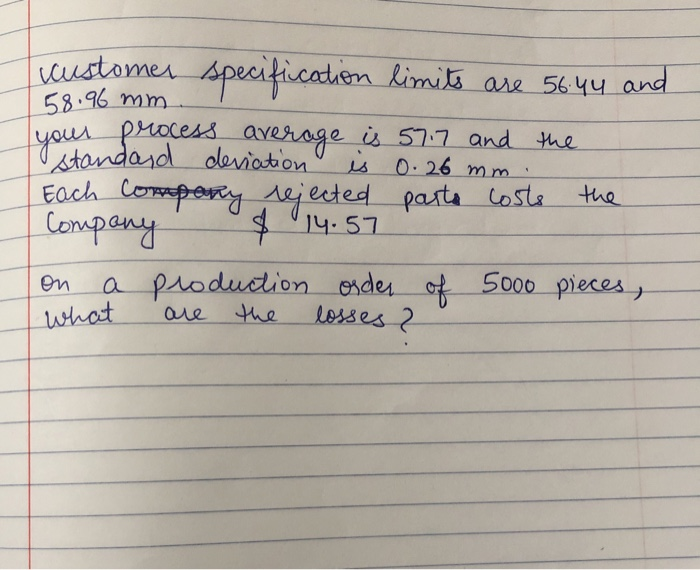 Customer specification limits are 56.44 and
58.96 mm.
your process average is 57.7 and the
standard deviation is 0.26 mm.
Each Company rejected parts costs the
Company $ 14.57
On a production order of 5000 pieces,
what are the losses?